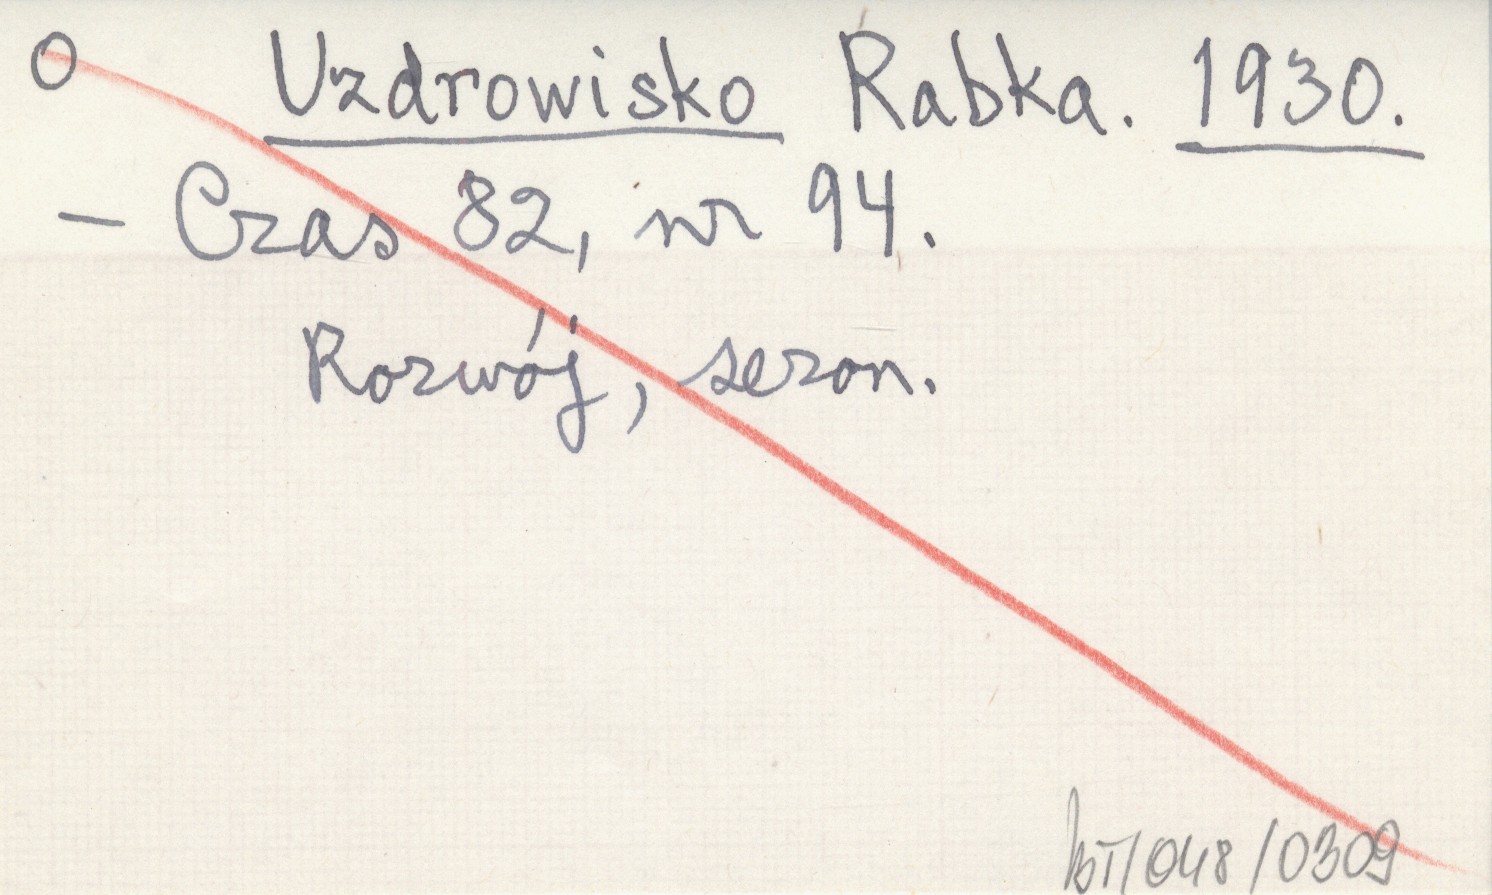 O Uzdrowisko Rabka. 1930.
– Czas 82, nr 94.
Rozwój, sezon.
/048/0309